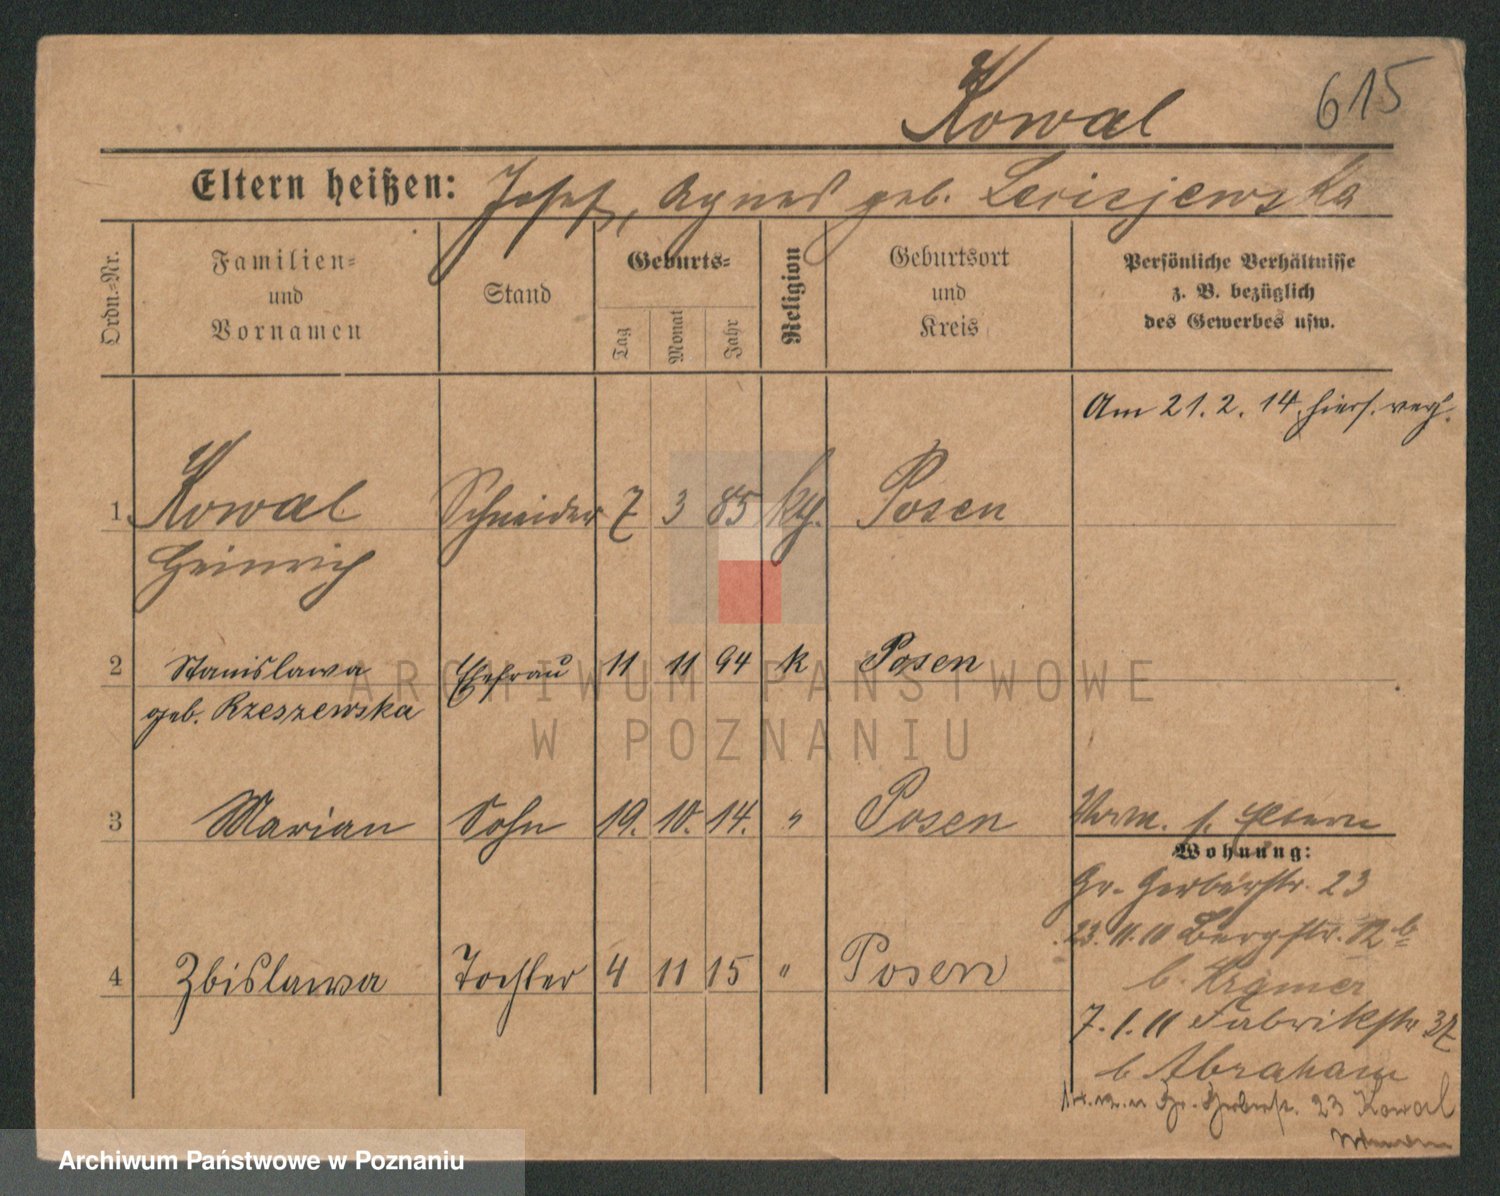 Kowal
615
Eltern heißen: Josef, Agnes geb.
Ordn.-Nr.
Familien-
und
Vornamen
Stand
Geburts-
Tag
Monat
Jahr
Religion
Geburtsort
und
Kreis
Persönliche Verhältnisse
z. B. bezüglich
des Gewerbes usw.
Am 21. 2. 14. hiers.
1. Kowal Schneider 7 3 85 kth. Posen
Heinrich
2 Stanislawa Ehefrau 11 11 94 k Posen
geb. Rzeszewska
3 Marian Sohn 19. 10. 14. " Posen
Wohnung:
Gr. Gerberstr. 23
23. 11. 10 Bergstr. 12b
b. Kramer
4 Zbislawa Tochter 4 11 15 " Posen
7. 1. 11 Fabrikstr. 37
b Abraham
Gr. Gerberstr. 23 Kowal
ARCHIWUM PAŃSTWOWE
W POZNANIU
Archiwum Państwowe w Poznaniu